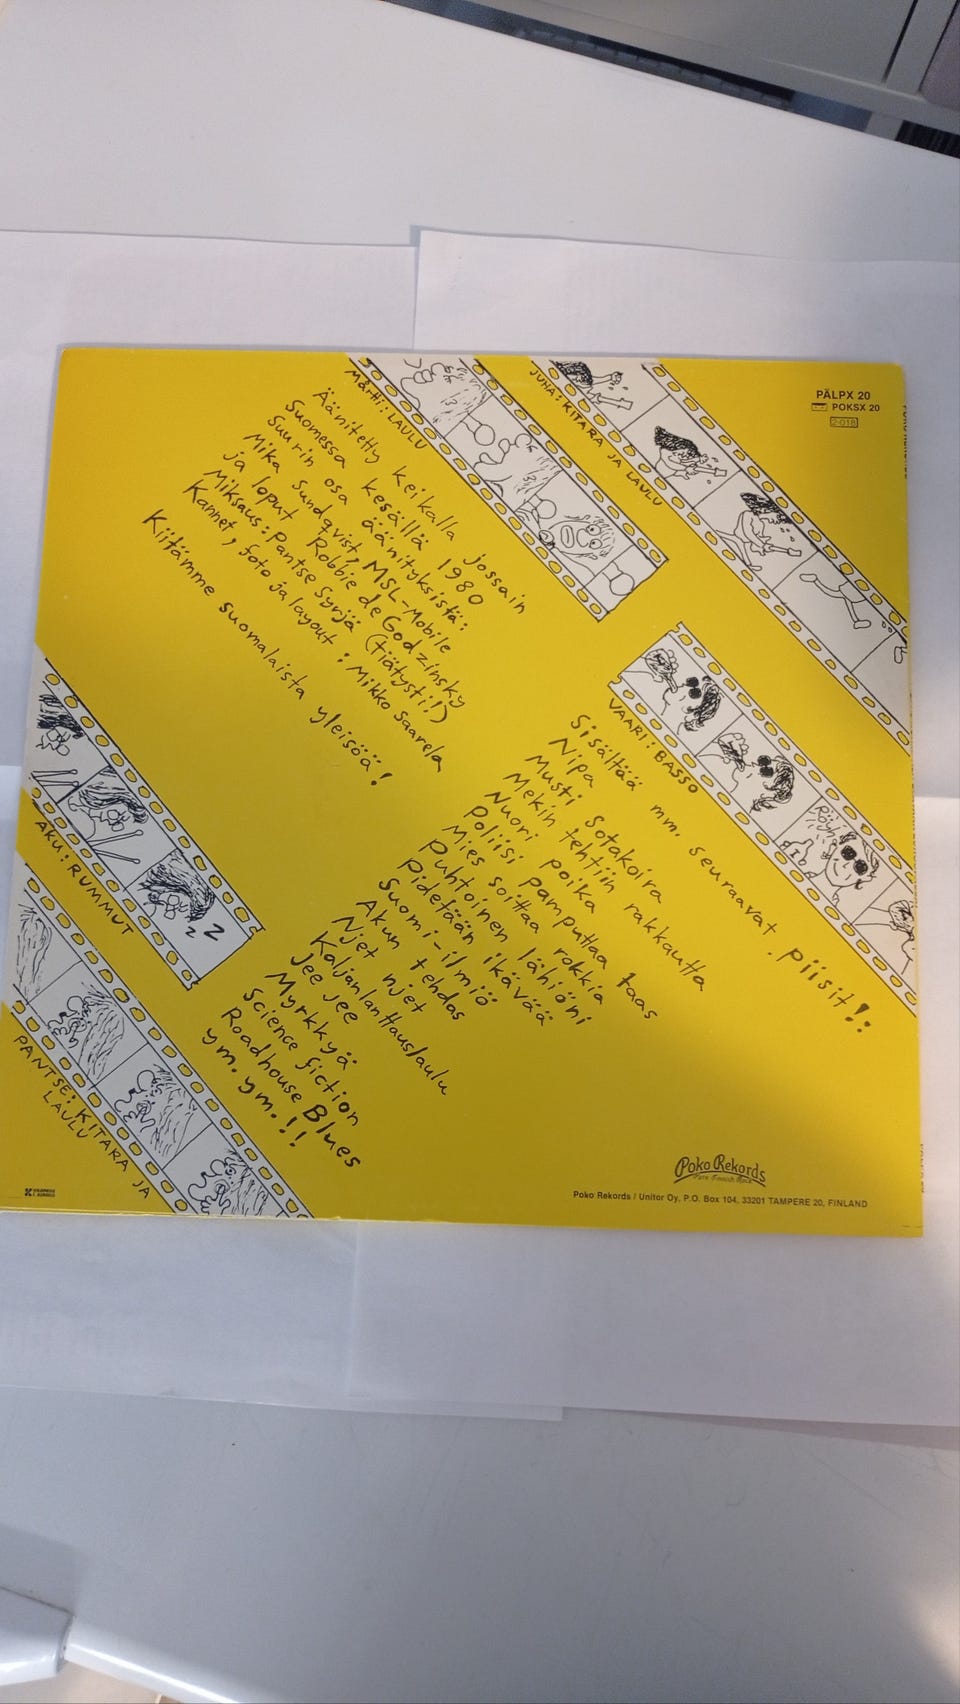 PÄLPX 20
POKSX 20
2-018
JUHA: KITARA JA LAULU
Martti: LAULU
Äänitetty keikalla jossain
Suomessa kesällä 1980
Suurin osa äänityksistä:
Mika Sundqvist, MSL-Mobile
ja loput Robbie de Godzinsky
Miksaus: Pantse Syrjä (tiätysti!)
Kannet, foto ja layout: Mikko Saarela
Kiitämme suomalaista yleisöä!
VAARI: BASSO
Röyh
Sisältää mm. seuraavat piisit!:
Nipa
Musti Sotakoira
Mekin tehtiin rakkautta
Nuori poika
Poliisi pamputtaa taas
Mies soittaa rokkia
Puhtoinen lähiöni
Pidetään ikävää
Suomi-ilmiö
Akun tehdas
Njet njet
Kaljanlanttauslaulu
Jee jee
Myrkkyä
Science fiction
Roadhouse Blues
ym. ym.!!
AKU: RUMMUT
Z Z
PANTSE: KITARA JA
LAULU
Poko Rekords
Pure Finnish Rock
Poko Rekords / Unitor Oy, P.O. Box 104, 33201 TAMPERE 20, FINLAND